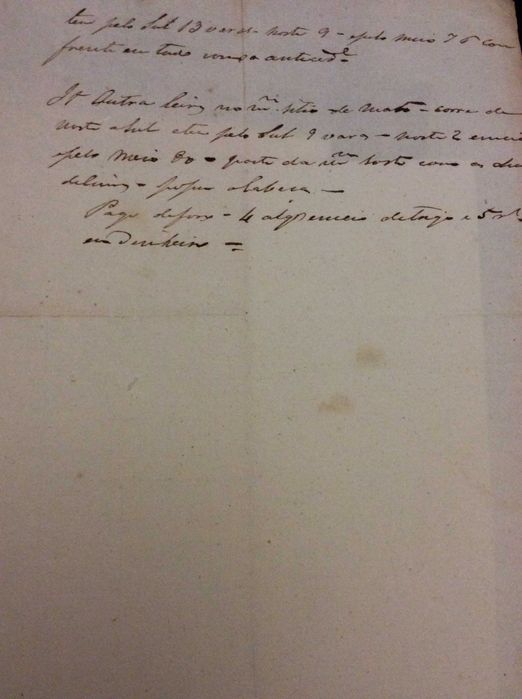 tem pelo Sul 13 varas - norte 9 - e pelo meio 76 con
frente em tudo com a anteced.e
It. Outra leira no m.mo sitio de Mato - corre de
norte a Sul e tem pelo Sul 9 varas - norte 2 e meia
e pelo meio 80 - parte da m.ma sorte com as
Paga de foro - 4 alq.es e meio de trigo e 5 r.s
em Dinheiro =